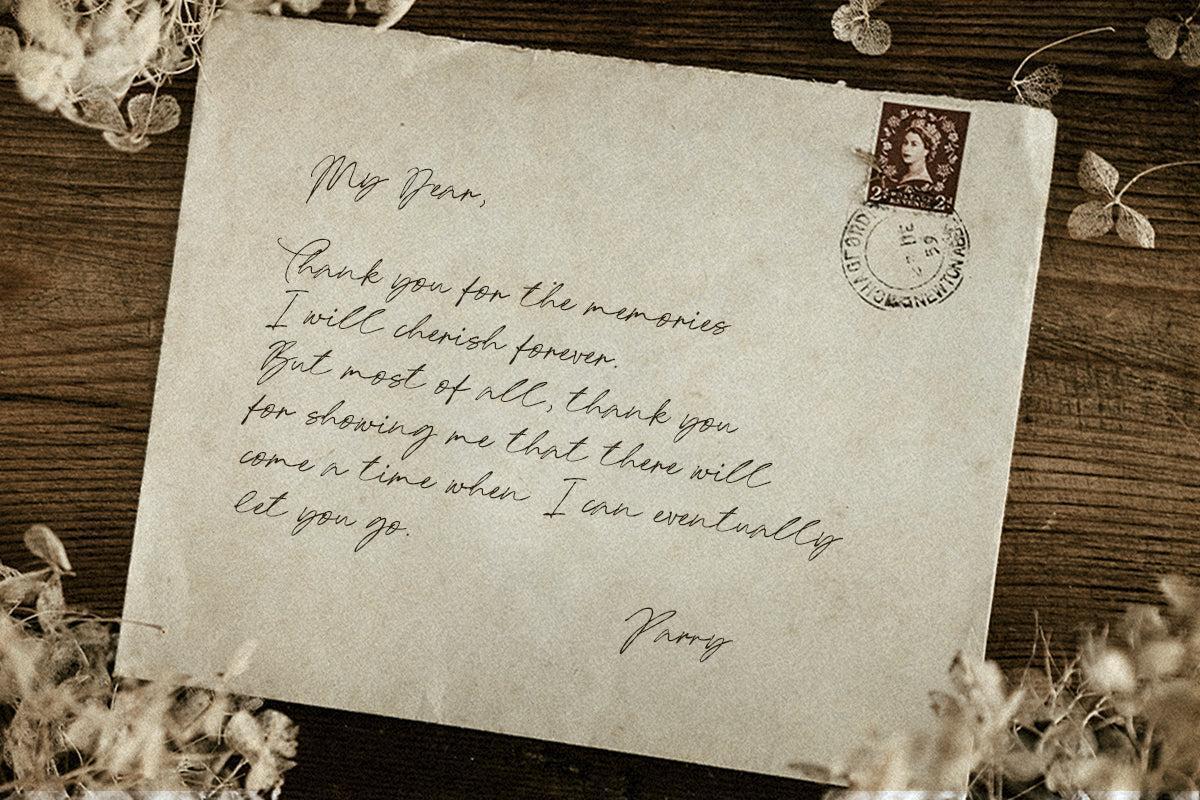 My Dear,
Thank you for the memories
I will cherish forever.
But most of all, thank you
for showing me that there will
come a time when I can eventually
let you go.
Parry
2d 2d
DE
59
NEWTON ABBOT